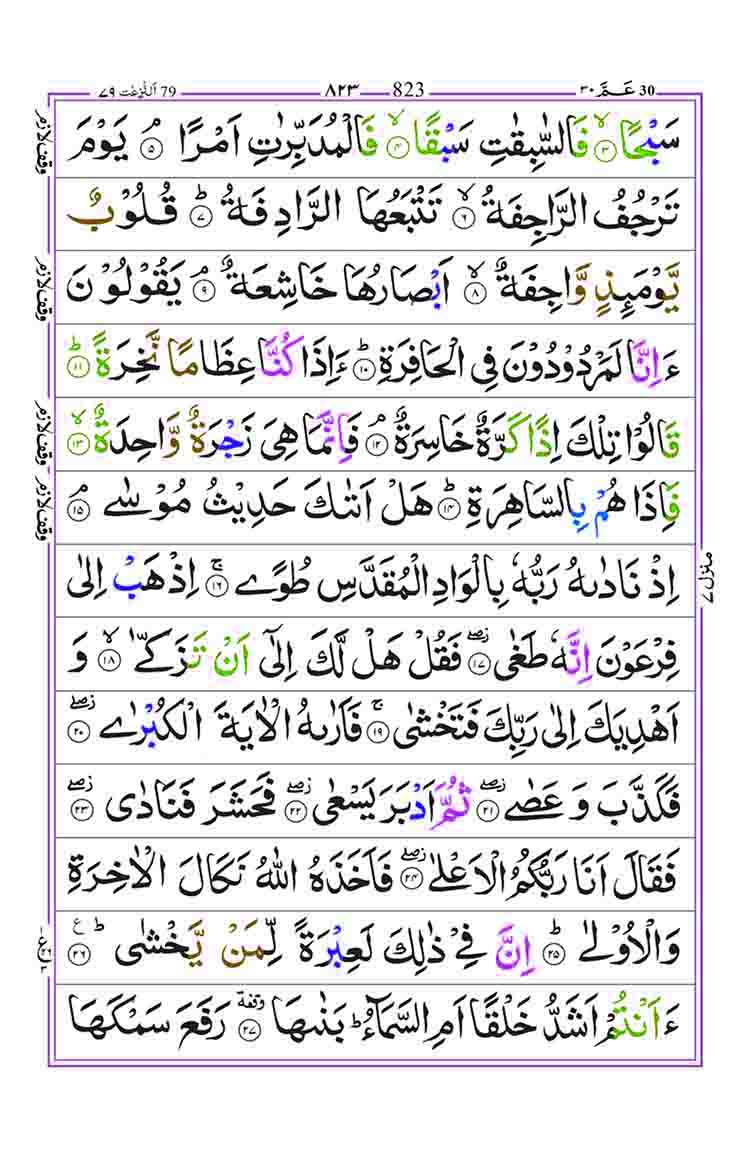 ٧٩ اَلنّٰزِعٰت 79 ٨٢٣ 823 ٣٠ عَـمَّ 30
سَبْحًا ۙ‏﴿۳﴾ فَالسّٰبِقٰتِ سَبْقًا ۙ‏﴿۴﴾ فَالْمُدَبِّرٰتِ اَمْرًا ۘ‏﴿۵﴾ يَوْمَ
تَرْجُفُ الرَّاجِفَةُ ۙ‏﴿۶﴾ تَتْبَعُهَا الرَّادِفَةُ ؕ‏﴿۷﴾ قُلُوْبٌ
يَّوْمَئِذٍ وَّاجِفَةٌ ۙ‏﴿۸﴾ اَبْصَارُهَا خَاشِعَةٌ ۘ‏﴿۹﴾ يَقُوْلُوْنَ
ءَاِنَّا لَمَرْدُوْدُوْنَ فِى الْحَافِرَةِ ؕ‏﴿۱۰﴾ ءَاِذَا كُنَّا عِظَامًا نَّخِرَةً ؕ‏﴿۱۱﴾
قَالُوْا تِلْكَ اِذًا كَرَّةٌ خَاسِرَةٌ ۘ‏﴿۱۲﴾ فَاِنَّمَا هِىَ زَجْرَةٌ وَّاحِدَةٌ ۙ‏﴿۱۳﴾
فَاِذَا هُمْ بِالسَّاهِرَةِ ؕ‏﴿۱۴﴾ هَلْ اَتٰىكَ حَدِيْثُ مُوْسٰى ۘ‏﴿۱۵﴾
اِذْ نَادٰىهُ رَبُّهٗ بِالْوَادِ الْمُقَدَّسِ طُوًى ۚ‏﴿۱۶﴾ اِذْهَبْ اِلٰى
فِرْعَوْنَ اِنَّهٗ طَغٰى ۖ‏﴿۱۷﴾ فَقُلْ هَلْ لَّكَ اِلٰٓى اَنْ تَزَكّٰى ۙ‏﴿۱۸﴾ وَ
اَهْدِيَكَ اِلٰى رَبِّكَ فَتَخْشٰى ۚ‏﴿۱۹﴾ فَاَرٰىهُ الْاٰيَةَ الْكُبْرٰى ۖ‏﴿۲۰﴾
فَكَذَّبَ وَعَصٰى ۖ‏﴿۲۱﴾ ثُمَّ اَدْبَرَ يَسْعٰى ۖ‏﴿۲۲﴾ فَحَشَرَ فَنَادٰى ۖ‏﴿۲۳﴾
فَقَالَ اَنَا رَبُّكُمُ الْاَعْلٰى ۖ‏﴿۲۴﴾ فَاَخَذَهُ اللّٰهُ نَكَالَ الْاٰخِرَةِ
وَالْاُوْلٰى ؕ‏﴿۲۵﴾ اِنَّ فِىْ ذٰلِكَ لَعِبْرَةً لِّمَنْ يَّخْشٰى ؕ‏﴿۲۶﴾ ع
ءَاَنْتُمْ اَشَدُّ خَلْقًا اَمِ السَّمَآءُ ؕ بَنٰىهَا وقفة ‏﴿۲۷﴾ رَفَعَ سَمْكَهَا
وقف لازم
وقف لازم
وقف لازم
وقف لازم
منزل ٧